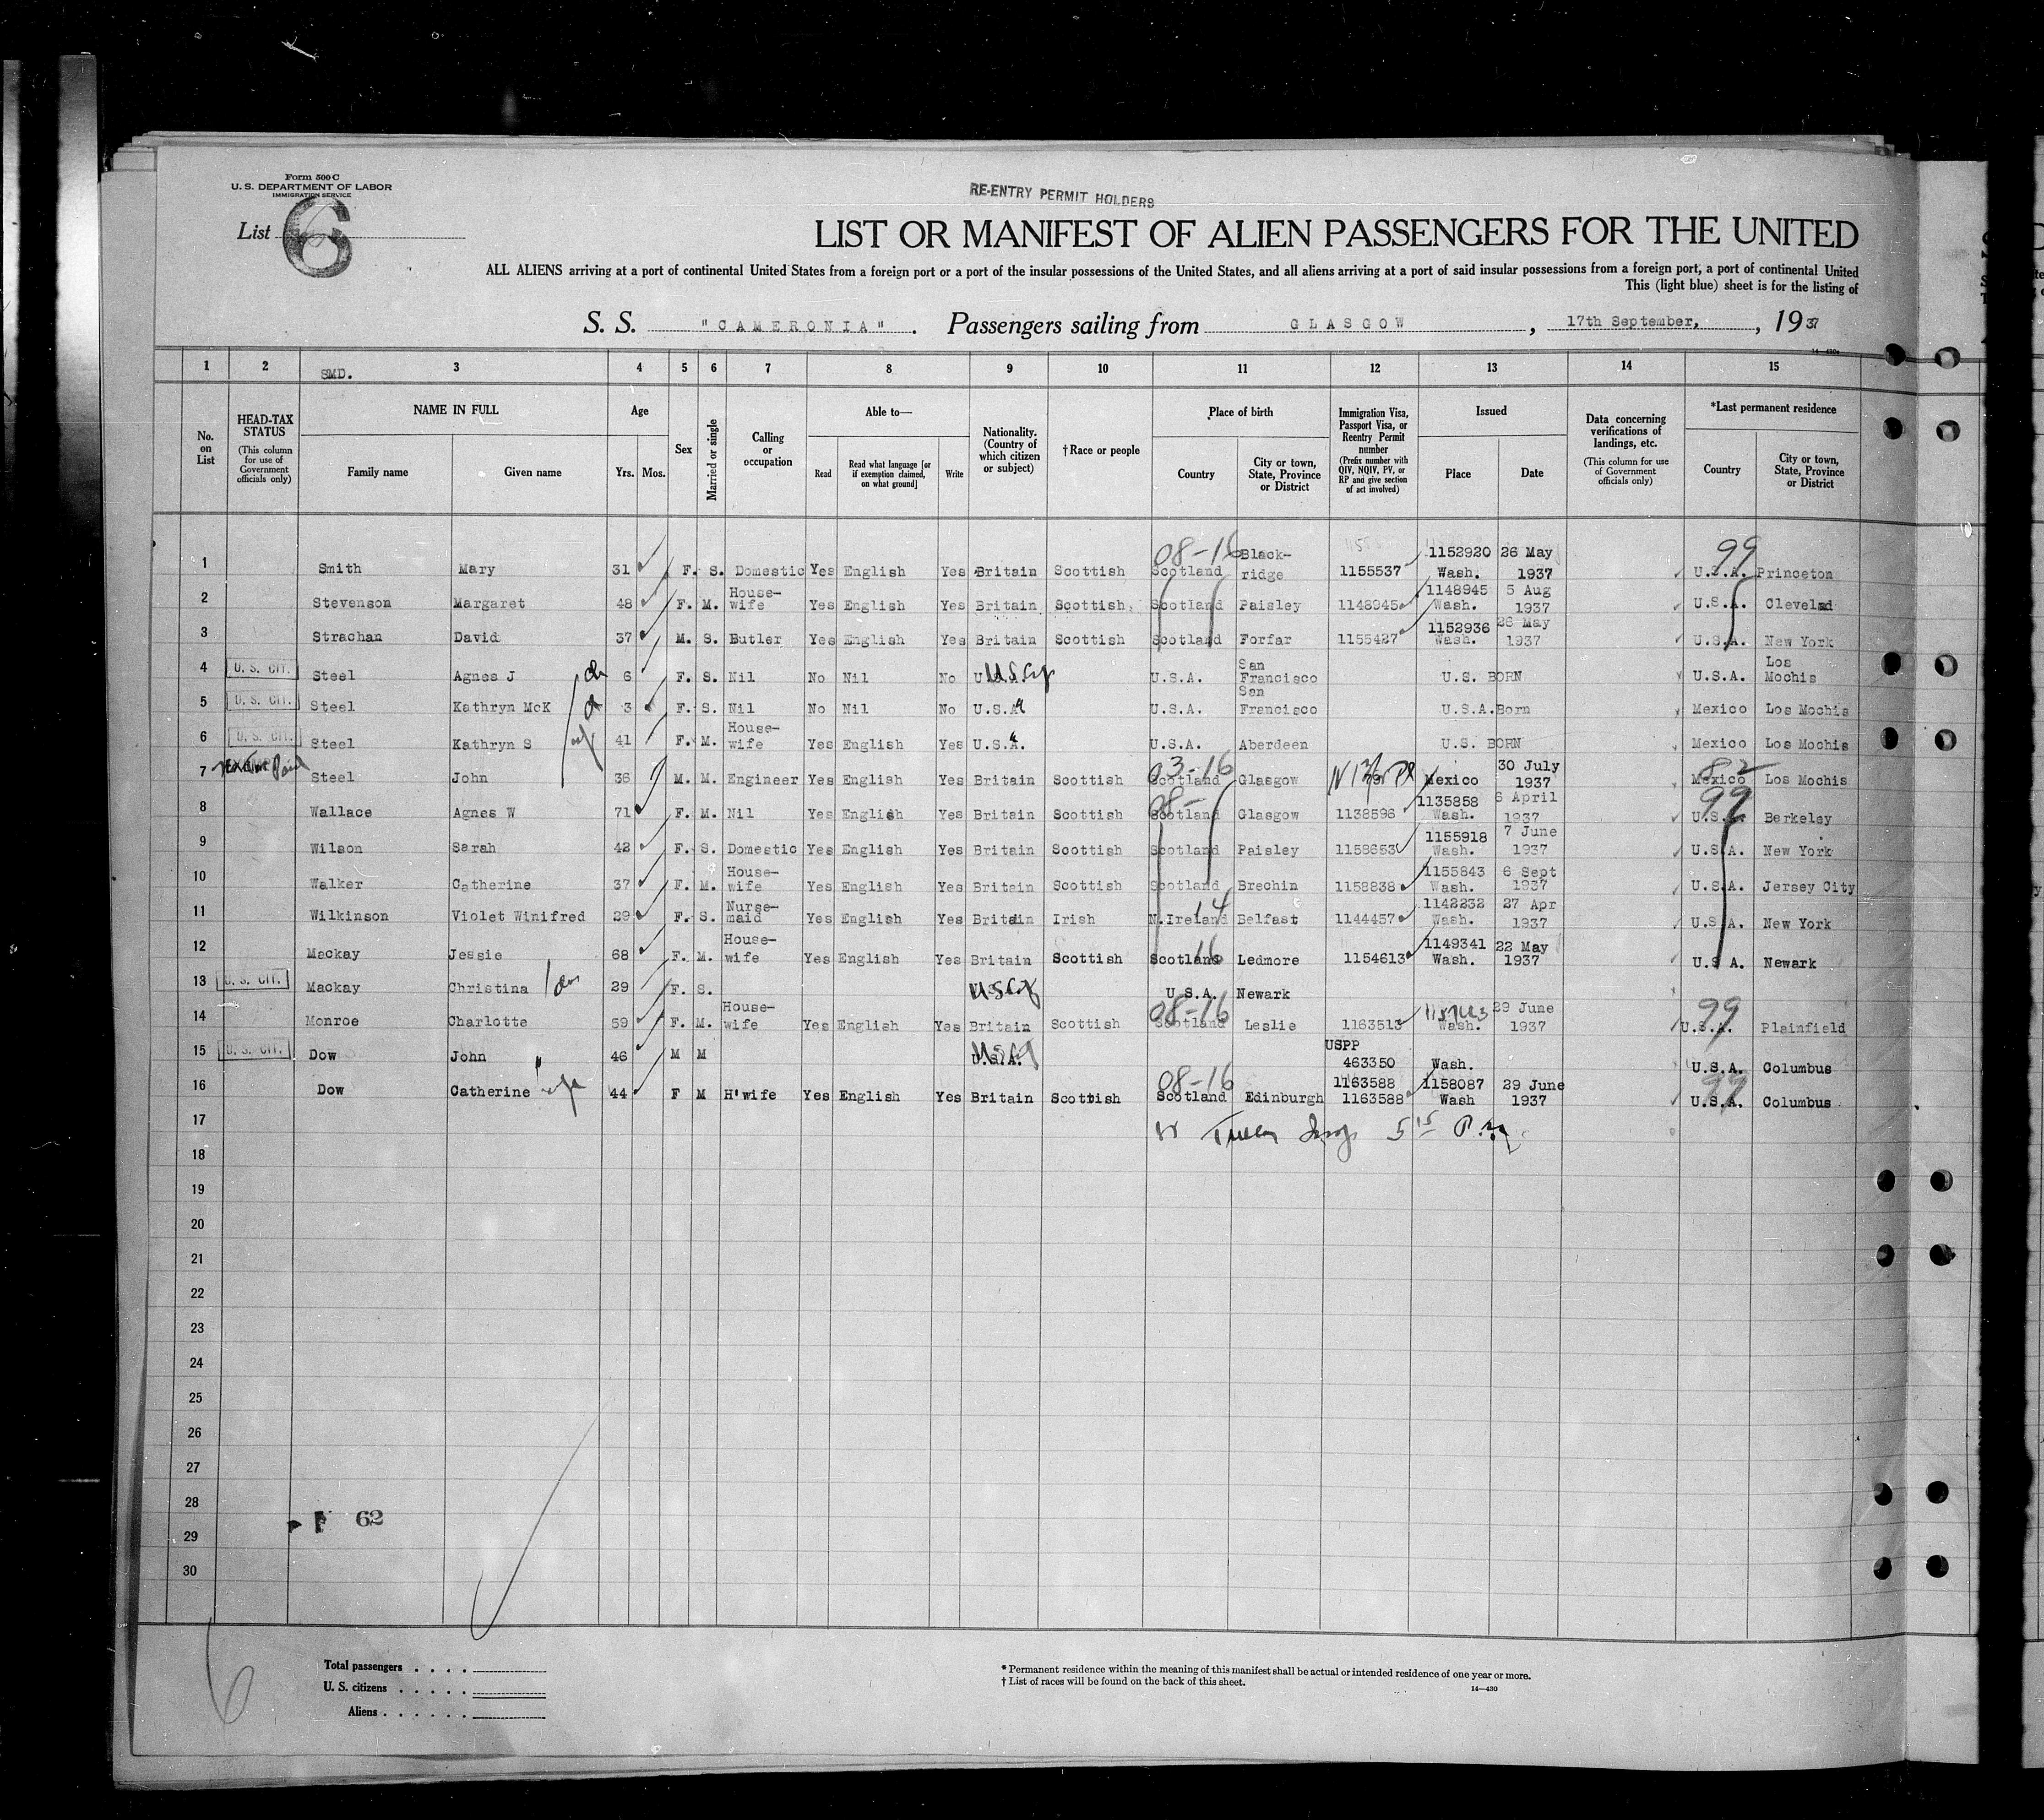 Form 500 C
U. S. DEPARTMENT OF LABOR
IMMIGRATION SERVICE
List 6
RE-ENTRY PERMIT HOLDERS
LIST OR MANIFEST OF ALIEN PASSENGERS FOR THE UNITED
ALL ALIENS arriving at a port of continental United States from a foreign port or a port of the insular possessions of the United States, and all aliens arriving at a port of said insular possessions from a foreign port, a port of continental United
This (light blue) sheet is for the listing of
S. S. "CAMERONIA". Passengers sailing from GLASGOW, 17th September, , 1937
14—430a
1 2 3 4 5 6 7 8 9 10 11 12 13 14 15
SMD.
No. on List
HEAD-TAX STATUS (This column for use of Government officials only)
NAME IN FULL Family name Given name
Age Yrs. Mos.
Sex
Married or single
Calling or occupation
Able to— Read Read what language [or if exemption claimed, on what ground] Write
Nationality. (Country of which citizen or subject)
† Race or people
Place of birth Country City or town, State, Province or District
Immigration Visa, Passport Visa, or Reentry Permit number (Prefix number with QIV, NQIV, PV, or RP and give section of act involved)
Issued Place Date
Data concerning verifications of landings, etc. (This column for use of Government officials only)
*Last permanent residence Country City or town, State, Province or District
1 Smith Mary 31 F. S. Domestic Yes English Yes Britain Scottish 08-16 Scotland Black-ridge 1155537 1152920 Wash. 26 May 1937 99 U.S.A. Princeton
2 Stevenson Margaret 48 F. M. House-wife Yes English Yes Britain Scottish Scotland Paisley 1148945 1148945 Wash. 5 Aug 1937 U.S.A. Clevelad
3 Strachan David 37 M. S. Butler Yes English Yes Britain Scottish Scotland Forfar 1155427 1152936 Wash. 26 May 1937 U.S.A. New York
4 U. S. CIT. Steel Agnes J 6 F. S. Nil No Nil No U.S. Cit U.S.A. San Francisco U.S. BORN U.S.A. Los Mochis
5 U. S. CIT. Steel Kathryn McK 3 F. S. Nil No Nil No U.S.A. U.S.A. San Francisco U.S.A. Born Mexico Los Mochis
6 U. S. CIT. Steel Kathryn S 41 F. M. House-wife Yes English Yes U.S.A. U.S.A. Aberdeen U.S. BORN Mexico Los Mochis
7 Steel John 36 M. M. Engineer Yes English Yes Britain Scottish 03-16 Scotland Glasgow Mexico 30 July 1937 82 Mexico Los Mochis
8 Wallace Agnes W 71 F. M. Nil Yes English Yes Britain Scottish 08- Scotland Glasgow 1138596 1135858 Wash. 6 April 1937 99 U.S.A. Berkeley
9 Wilson Sarah 42 F. S. Domestic Yes English Yes Britain Scottish Scotland Paisley 1158653 1155918 Wash. 7 June 1937 U.S.A. New York
10 Walker Catherine 37 F. M. House-wife Yes English Yes Britain Scottish Scotland Brechin 1158838 1155843 Wash. 6 Sept 1937 U.S.A. Jersey City
11 Wilkinson Violet Winifred 29 F. S. Nurse-maid Yes English Yes Britain Irish 14 N.Ireland Belfast 1144457 1142232 Wash. 27 Apr 1937 U.S.A. New York
12 Mackay Jessie 68 F. M. House-wife Yes English Yes Britain Scottish 16 Scotland Ledmore 1154613 1149341 Wash. 22 May 1937 U.S.A. Newark
13 U. S. CIT. Mackay Christina 29 F. S. U.S.A. Newark
14 Monroe Charlotte 59 F. M. House-wife Yes English Yes Britain Scottish 08-16 Scotland Leslie 1163513 Wash. 29 June 1937 99 U.S.A. Plainfield
15 U. S. CIT. Dow John 46 M M U.S.A. USPP 463350 Wash. U.S.A. Columbus
16 Dow Catherine wife 44 F M H'wife Yes English Yes Britain Scottish 08-16 Scotland Edinburgh 1163588 1163588 1158087 Wash 29 June 1937 99 U.S.A. Columbus
17
18
19
20
21
22
23
24
25
26
27
28
29
30
62
6
Total passengers . . . .
U. S. citizens . . . . .
Aliens . . . . . .
* Permanent residence within the meaning of this manifest shall be actual or intended residence of one year or more.
† List of races will be found on the back of this sheet.
14—430